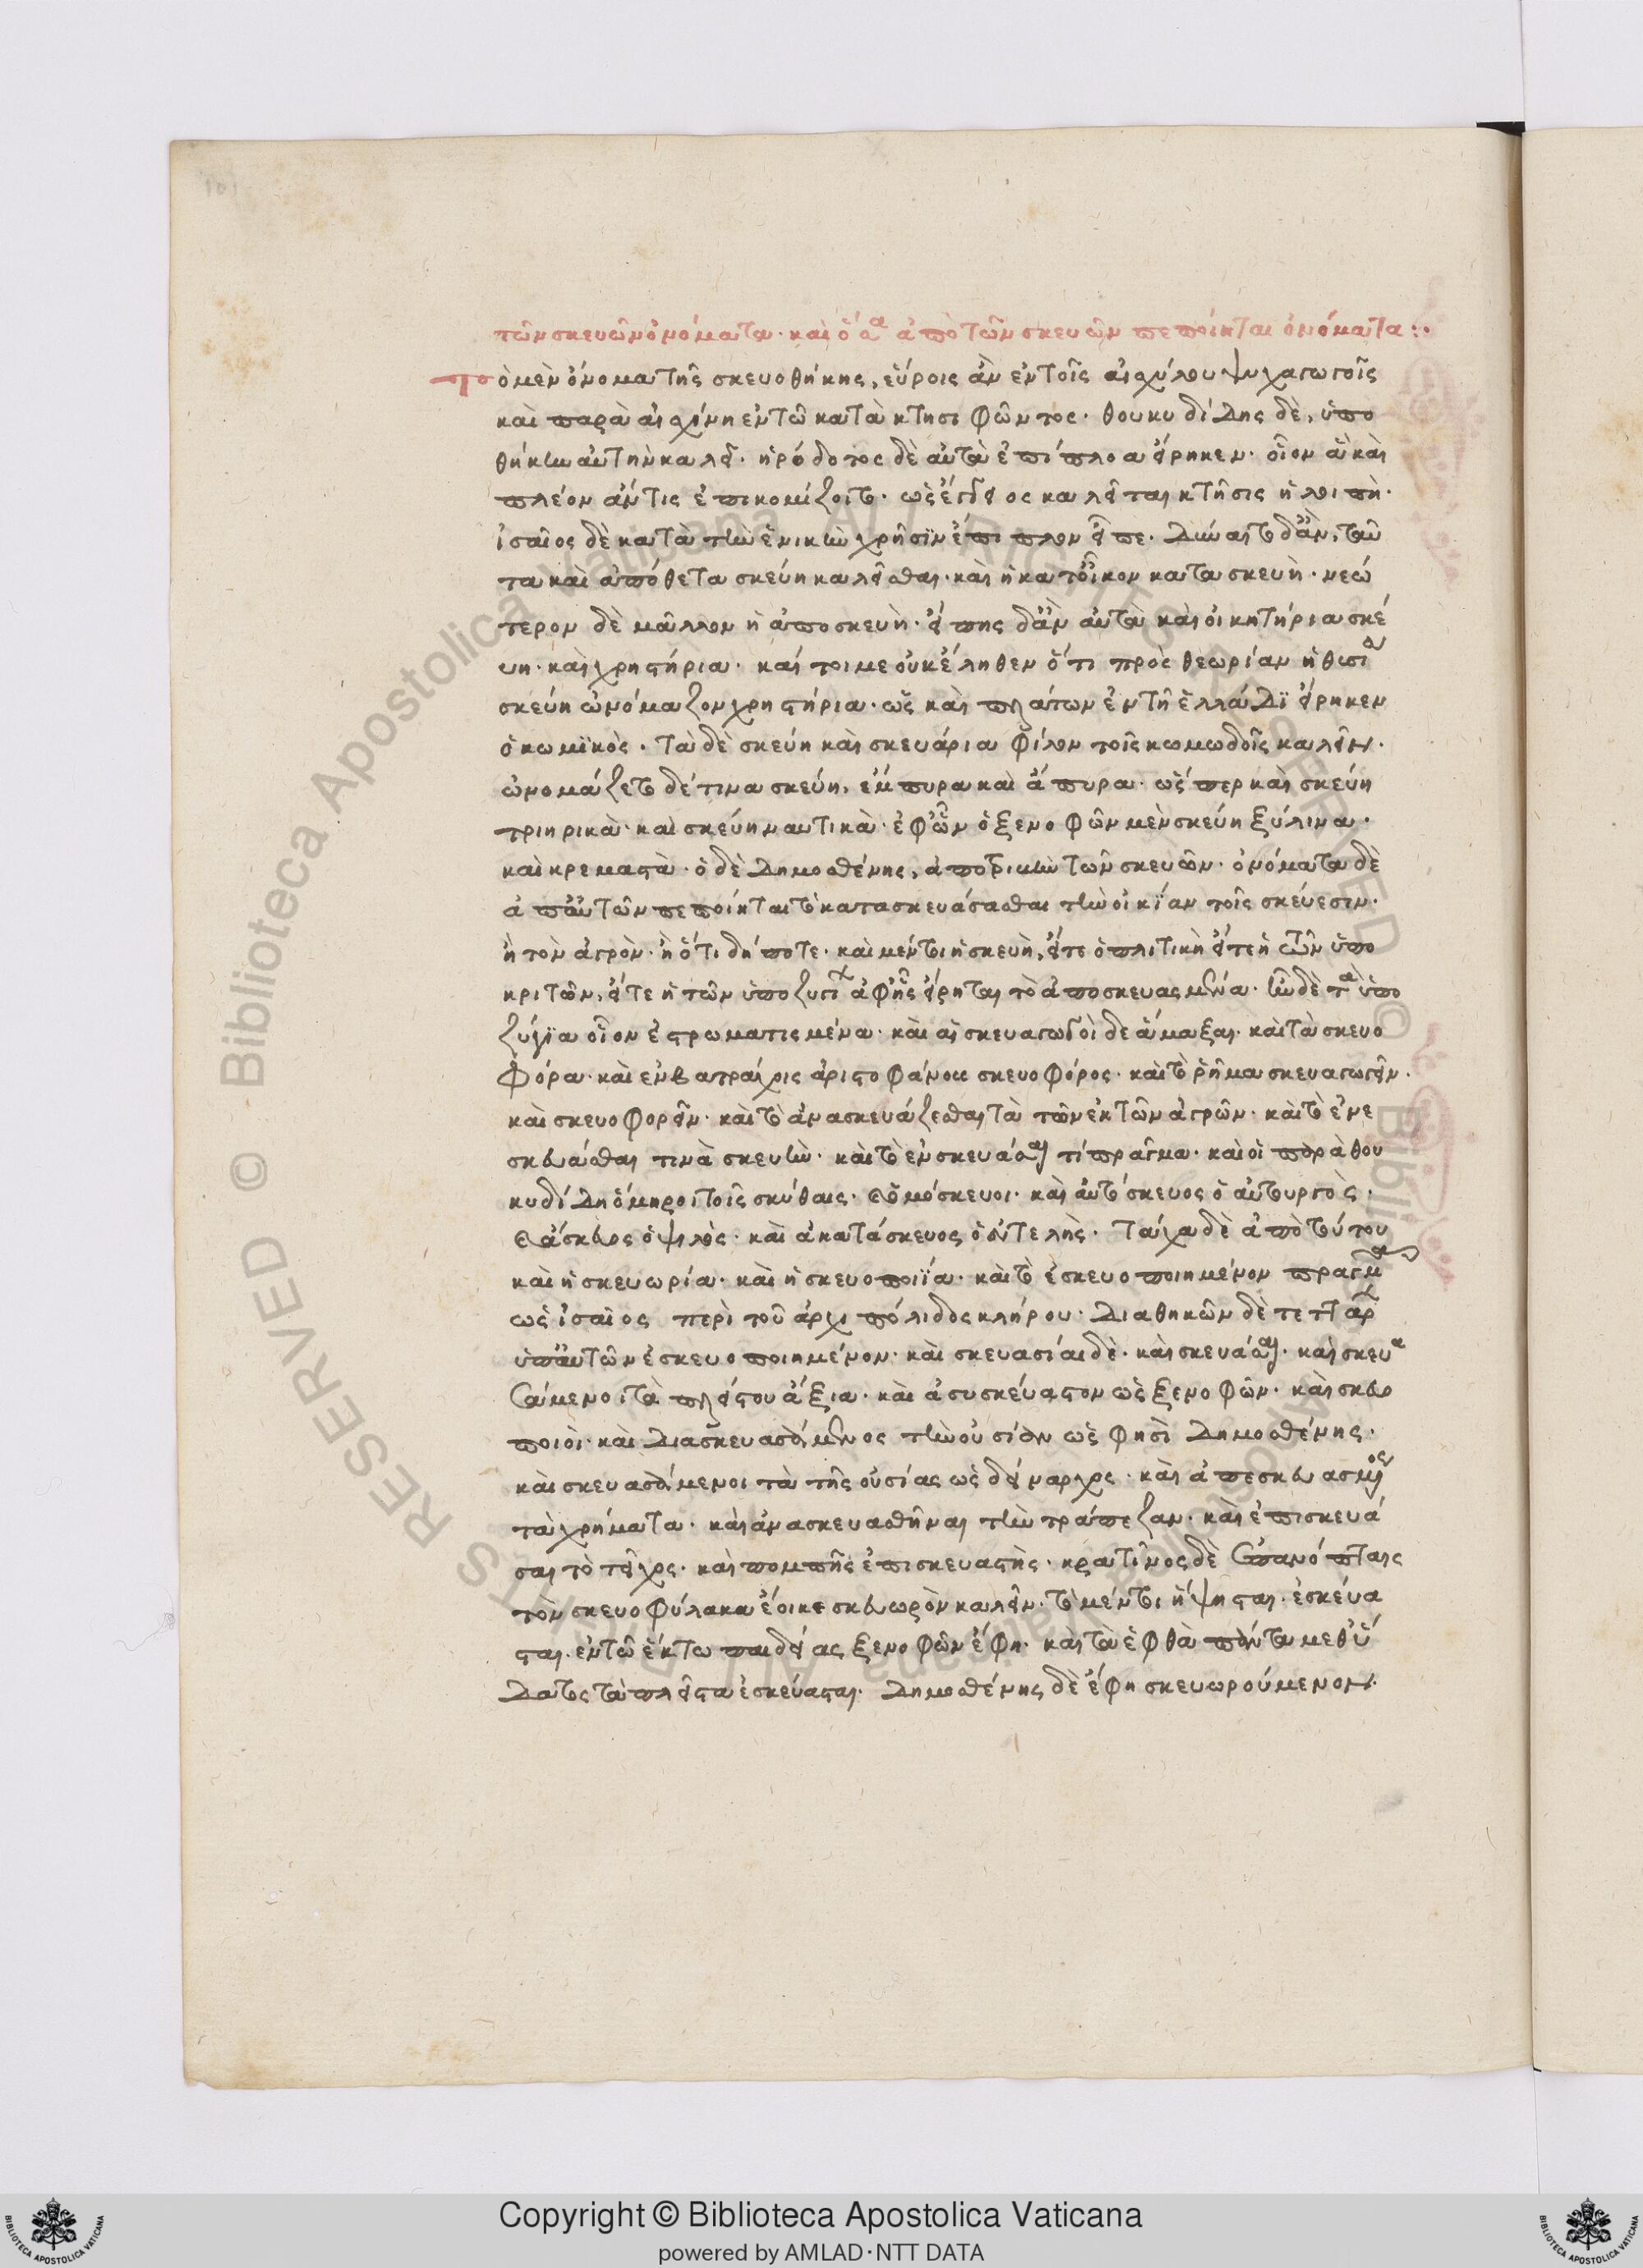 τῶν σκευῶν ὀνόματα· καὶ ὅσα ἀπὸ τῶν σκευῶν πεποίηται ὀνόματα:·
το ὁ μὲν ὄνομα τῆς σκευοθήκης, εὕροις ἂν ἐν τοῖς αἰσχύλου ψυχαγωγοῖς
καὶ παρὰ αἰσχίνη ἐν τῶ κατὰ κτησιφῶντος· θουκυδίδης δὲ, ὑπο
θήκην αὐτὴν καλεῖ· ἡρόδοτος δὲ αὐτὰ ἐπίπλοα εἴρηκεν· οἷον ἃ καὶ
πλέον ἄν τις ἐπικομίζοιτο· ὡς ἔγγειος καλεῖται κτῆσις ἡ λοιπή·
ἰσαῖος δὲ κατὰ τὴν ἑνικὴν χρῆσϊν ἔπιπλον εἶπε· δύναιτο δ' ἂν, ταῦ
τα καὶ ἀπόθετα σκεύη καλεῖσθαι· καὶ ἡ κατ' οἶκον κατασκευὴ· νεώ
τερον δὲ μᾶλλον ἡ ἀποσκευὴ· εἴποις δ' ἂν αὐτὰ καὶ οἰκητήρια σκέ
υη· καὶ χρηστήρια· καί τοι με οὐκ ἔληθεν ὅτι πρὸς θεωρίαν ἢ θυσίαν
σκεύη ὠνόμαζον χρηστήρια· ὡς καὶ πλάτων ἐν τῆ ἑλλάδϊ εἴρηκεν
ὁ κωμϊκὸς· τὰ δὲ σκεύη καὶ σκευάρια φίλον τοῖς κωμωδοῖς καλεῖν·
ὠνομάζετο δέ τινα σκεύη, ἔμπυρα καὶ ἄπυρα· ὥσπερ καὶ σκεύη
τριηρικὰ· καὶ σκεύη ναυτικὰ· ἐφ' ὧν ὁ ξενοφῶν μὲν σκεύη ξύλινα·
καὶ κρεμαστὰ· ὁ δὲ δημοσθένης, ἀπορίαν τῶν σκευῶν· ὀνόματα δὲ
ἀπ' αὐτῶν πεποίηται τὸ κατασκευάσασθαι τὴν οἰκΐαν τοῖς σκεύεσιν·
ἢ τὸν ἀγρὸν· ἢ ὅτι δήποτε· καὶ μέντοι ἡ σκευὴ, εἴτε ὁπλιτικὴ εἴτε ἡ τῶν ὑπο
κριτῶν, εἴτε ἡ τῶν ὑποζυγίων ἀφ' ἧς εἴρηται τὸ ἀποσκευασμένα· ὧδε τὰ ὑπο
ζύγϊα οἷον ἐστρωματισμένα· καὶ αἱ σκευαγωγοὶ δὲ ἅμαξαι· καὶ τὰ σκευο
φόρα· καὶ ἐν βατράχοις ἀριστοφάνους σκευοφόρος· καὶ τὸ ῥῆμα σκευαγωγεῖν·
καὶ σκευοφορεῖν· καὶ τὸ ἀνασκευάζεσθαι τὰ τῶν ἐκ τῶν ἀγρῶν· καὶ τὸ ἐνε
σκευάσθαι τινὰ σκευὴν· καὶ τὸ ἐνσκευάσαι τί πρᾶγμα· καὶ οἱ παρὰ θου
κυδίδη ὅμηροι τοῖς σκύθαις· ὁμόσκευοι· καὶ αὐτόσκευος ὁ αὐτουργὸς·
ἄσκευος ὁ ψιλὸς· καὶ ἀκατάσκευος ὁ εὐτελὴς· τάχα δὲ ἀπὸ τούτου
καὶ ἡ σκευωρία· καὶ ἡ σκευοποιΐα· καὶ τὸ ἐσκευοποιημένον πρᾶγμα
ὡς ἰσαῖος περὶ τοῦ ἀρχιπόλιδος κλήρου· διαθηκῶν δὲ τεττάρων
ὑπ' αὐτῶν ἐσκευοποιημένον· καὶ σκευασίαι δὲ· καὶ σκευάσαι· καὶ σκευα
σάμενοι τὰ πλείστου ἄξια· καὶ ἀσυσκεύαστον ὡς ξενοφῶν· καὶ σκευο
ποιοὶ· καὶ διασκευασάμενος τὴν οὐσίαν ὡς φησὶ δημοσθένης·
καὶ σκευασάμενοι τὰ τῆς οὐσίας ὡς δείναρχος· καὶ ἀπεσκευασμένος
τὰ χρήματα· καὶ ἀνασκευασθῆναι τὴν τράπεζαν· καὶ ἐπισκευά
σαι τὸ τεῖχος· καὶ πομπῆς ἐπισκευαστὴς· κρατῖνος δὲ πανόπταις
τὸν σκευοφύλακα ἔοικε σκευωρὸν καλεῖν· τὸ μέντοι ἥψησται· ἐσκεύα
σται· ἐν τῶ ἕκτω παιδείας ξενοφῶν ἔφη· καὶ τὰ ἑφθὰ πάντα μεθ' ὕ
δατος τὰ πλεῖστα ἐσκεύασται· δημοσθένης δὲ ἔφη σκευωρούμενον·
Copyright © Biblioteca Apostolica Vaticana
powered by AMLAD·NTT DATA